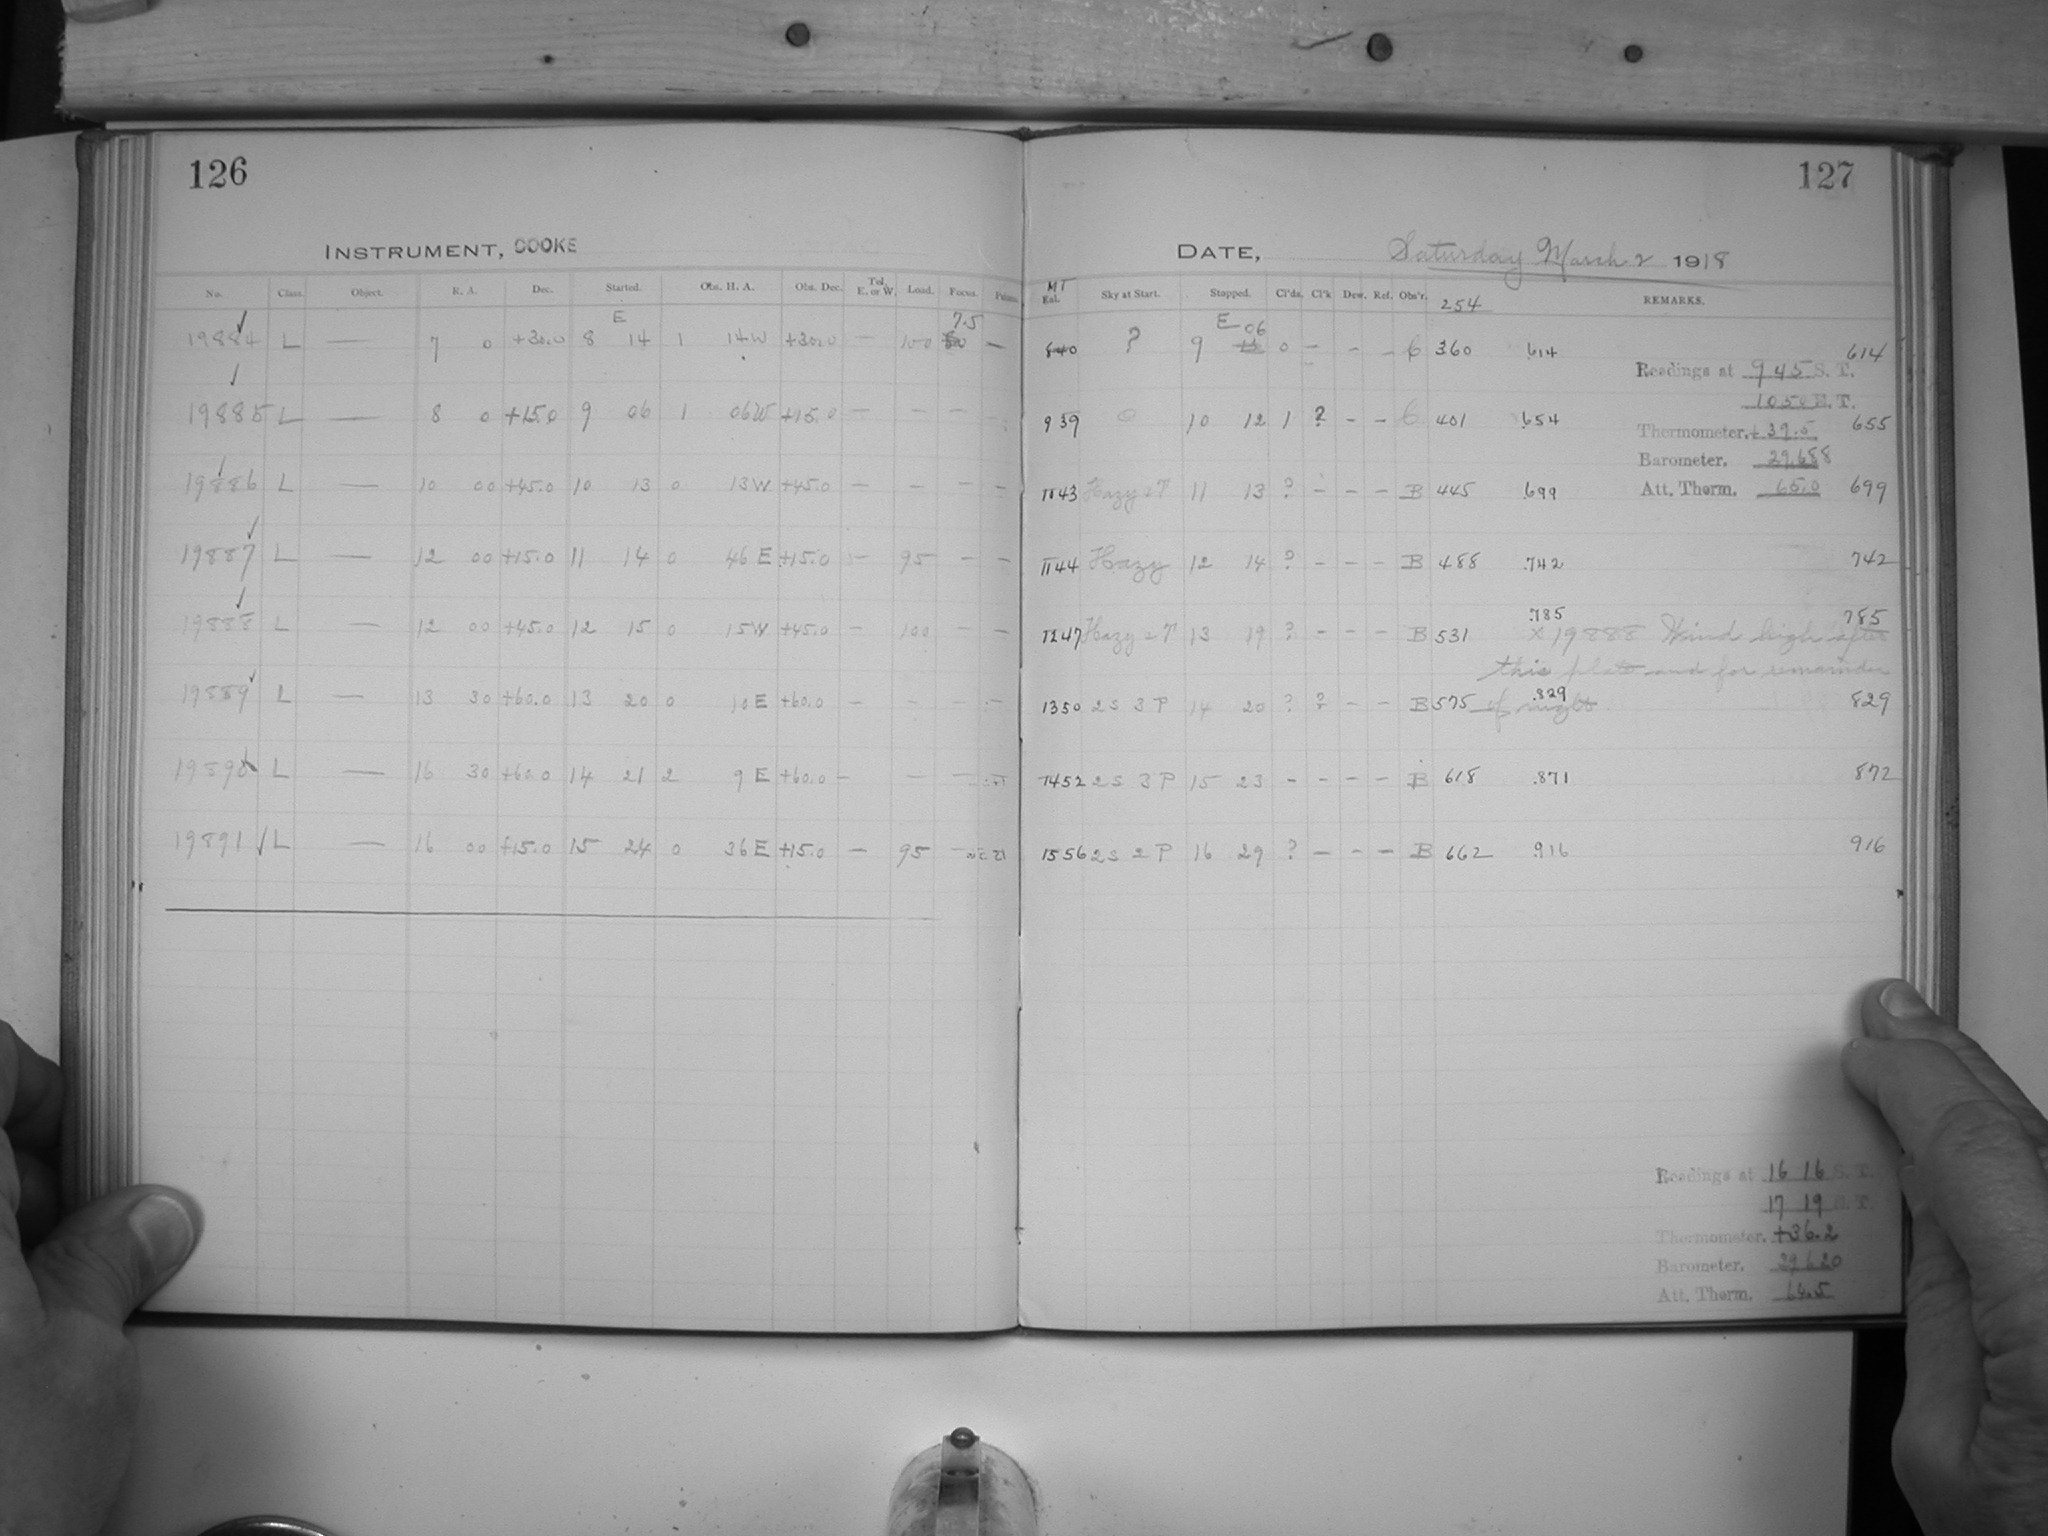 126
127
INSTRUMENT, COOKE
DATE, Saturday March 2 1918
No. Class. Object. R. A. Dec. Started. Obs. H. A. Obs. Dec. Tel. E. or W. Load. Focus.
MT Sky at Start. Stopped. Cl'ds. Cl'k Dew. Ref. Obs'r. 254 REMARKS.
19884 L — 7 0 +30.0 E 8 14 1 14W +30.0 — 100 7.5 —
840 ? 9 E 06 0 — - - C 360 .614 614
Readings at 9 45 S. T.
1050 E. T.
19885 L — 8 0 +15.0 9 06 1 06W +15.0 — — — —
939 0 10 12 1 ? - - C 401 .654 655
Thermometer, +39.5
Barometer. 29.688
19886 L — 10 00 +45.0 10 13 0 13W +45.0 — — — —
1143 Hazy 11 13 ? - - - B 445 .699 699
Att. Therm. 65.0
19887 L — 12 00 +15.0 11 14 0 46 E +15.0 — 95 — —
1144 Hazy 12 14 ? - - - B 488 .742 742
19888 L — 12 00 +45.0 12 15 0 15W +45.0 — 100 — —
1247 Hazy 13 19 ? - - - B 531 .785 785
x 19888 Wind high after
this plate and for remainder
of night
19889 L — 13 30 +60.0 13 20 0 10 E +60.0 — - - —
1350 2S 3P 14 20 ? ? - - B 575 .829 829
19890 L — 16 30 +60.0 14 21 2 9 E +60.0 — — —
1452 2S 3P 15 23 - - - - B 618 .871 872
19891 L — 16 00 +15.0 15 24 0 36 E +15.0 — 95 —
1556 2S 2P 16 29 ? - - - B 662 .916 916
Readings at 16 16 S. T.
17 19 E. T.
Thermometer. +36.2
Barometer. 29.620
Att. Therm. 64.5